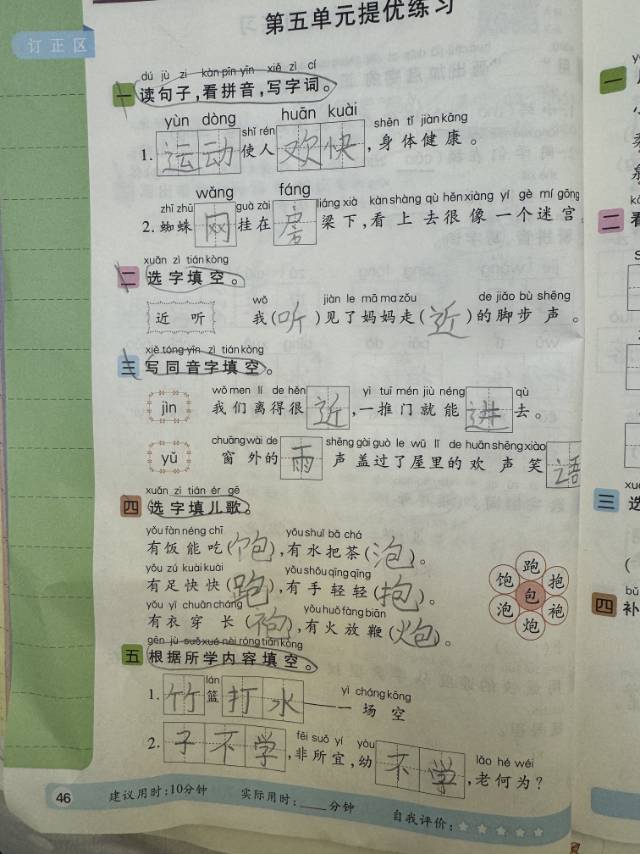 第五单元提优练习
订正区
dú jù zi kàn pīn yīn xiě zì cí
一 读句子,看拼音,写字词。
yùn dòng huān kuài
shǐ rén shēn tǐ jiàn kāng
1. 运动 使人 欢快 ,身体健康。
wǎng fáng
zhī zhū guà zài liáng xià kàn shàng qù hěn xiàng yí gè mí gōng
2. 蜘蛛 网 挂在 房 梁下,看上去很像一个迷宫
xuǎn zì tián kòng
二 选字填空。
wǒ jiàn le mā ma zǒu de jiǎo bù shēng
近 听 我(听)见了妈妈走(近)的脚步声。
xiě tóng yīn zì tián kòng
三 写同音字填空。
wǒ men lí de hěn yì tuī mén jiù néng qù
jìn 我们离得很 近 ,一推门就能 进 去。
chuāng wài de shēng gài guò le wū lǐ de huān shēng xiào
yǔ 窗外的 雨 声盖过了屋里的欢声笑 语
xuǎn zì tián ér gē
四 选字填儿歌。
yǒu fàn néng chī yǒu shuǐ bǎ chá
有饭能吃(饱),有水把茶(泡)。
yǒu zú kuài kuài yǒu shǒu qīng qīng
有足快快(跑),有手轻轻(抱)。
yǒu yī chuān cháng yǒu huǒ fàng biān
有衣穿长(袍),有火放鞭(炮)。
跑
饱 抱
包
泡 袍
炮
gēn jù suǒ xué nèi róng tián kòng
五 根据所学内容填空。
lán yì cháng kōng
1. 竹 篮 打水——一场空
fēi suǒ yí yòu lǎo hé wéi
2. 子不学 ,非所宜,幼 不学 ,老何为?
46 建议用时:10分钟 实际用时:____分钟 自我评价:☆☆☆☆☆
一
二 看
三 选
四 补